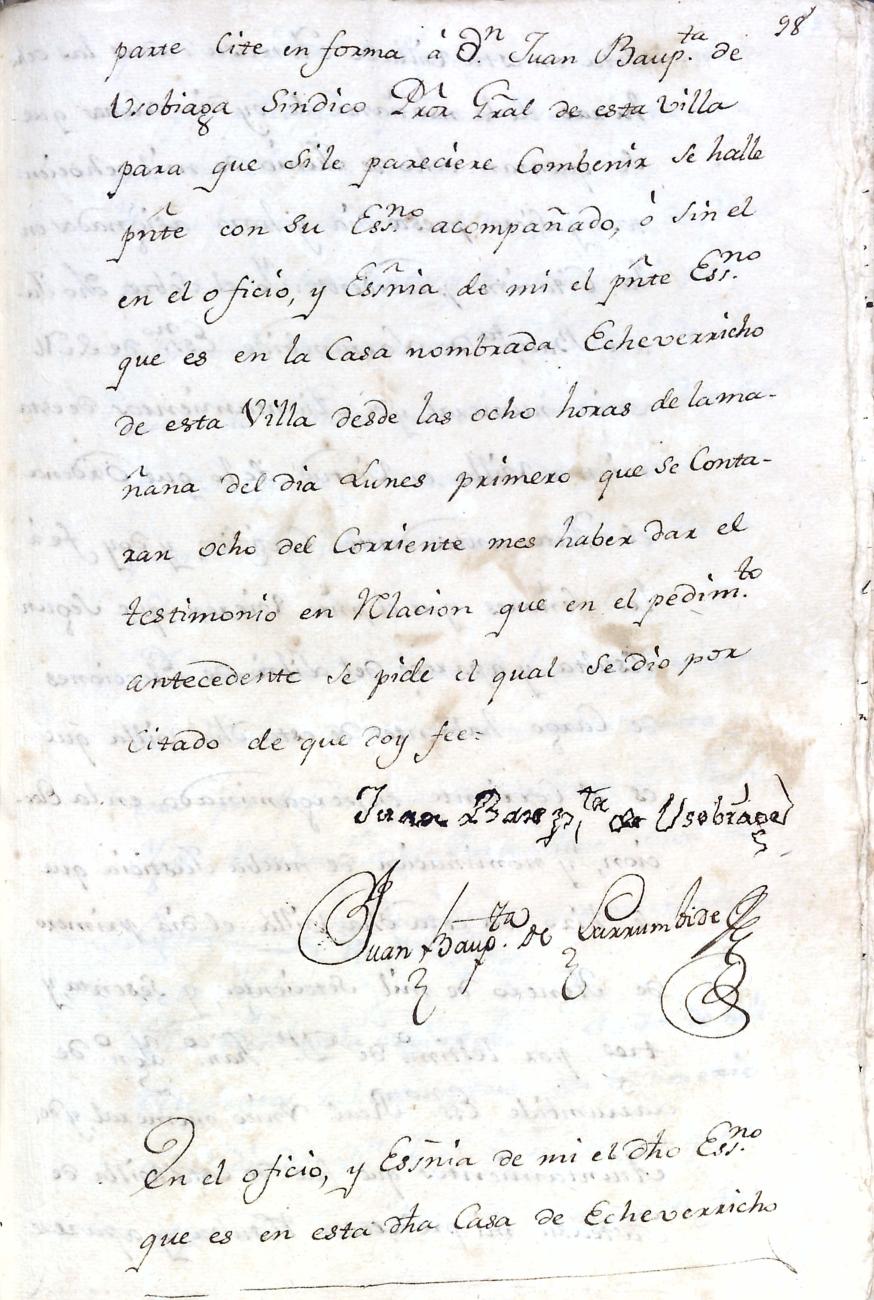 98
parte Cite en forma á Dn. Juan Baupta. de
Usobiaga Sindico Pror Gral de esta Villa
para que si le pareciere Combenir se halle
pñte con su Essno. acompañado, ó sin el
en el oficio, y Essñia de mi el pñte Essno.
que es en la Casa nombrada Echeverricho
de esta Villa desde las ocho horas de la ma-
ñana del dia Lunes primero que se Conta-
ran ocho del Corriente mes haber dar el
testimonio en Rlacion que en el pedimto.
antecedente se pide el qual se dio por
Citado de que doy fee:
Juan Baupta. de
Juan Baupta. de Larrumbide
En el oficio, y Essñia de mi el dho Essno.
que es en esta dha Casa de Echeverricho